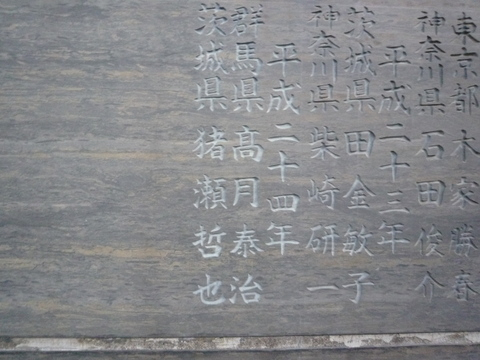 東京都 木家勝春
神奈川県 石田俊介
平成二十三年
茨城県 田金敏子
神奈川県 柴崎研一
平成二十四年
群馬県 髙月泰治
茨城県 猪瀬哲也